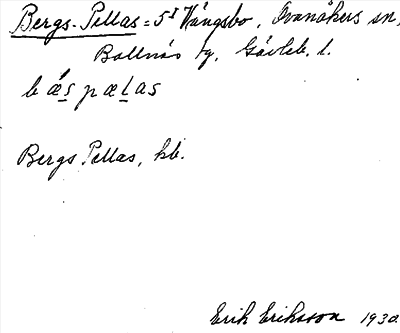 Bergs-Pellas = 5¹ Hängsbo, Ovanåkers sn,
Bollnäs tg, Gävleb. l.
bǽs pælas
Bergs Pellas, kb.
Erik Eriksson 1930.